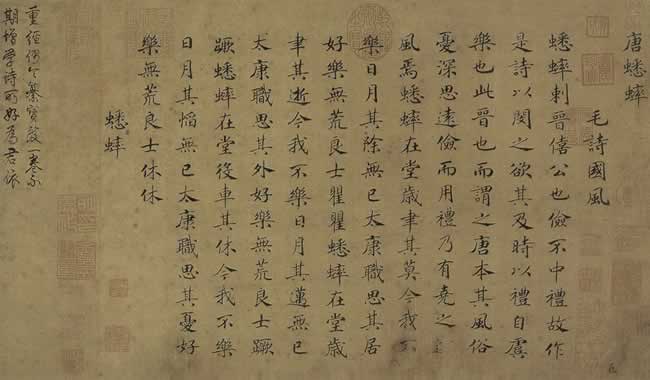 唐蟋蟀
毛詩國風
蟋蟀刺晉僖公也儉不中禮故作
是詩以閔之欲其及時以禮自虞
樂也此晉也而謂之唐本其風俗
憂深思遠儉而用禮乃有堯之
風焉蟋蟀在堂歲聿其莫今我不
樂日月其除無已太康職思其居
好樂無荒良士瞿瞿蟋蟀在堂歲
聿其逝今我不樂日月其邁無已
太康職思其外好樂無荒良士蹶
蹶蟋蟀在堂役車其休今我不樂
日月其慆無已太康職思其憂好
樂無荒良士休休
蟋蟀
重經一卷
期增學詩好為君依